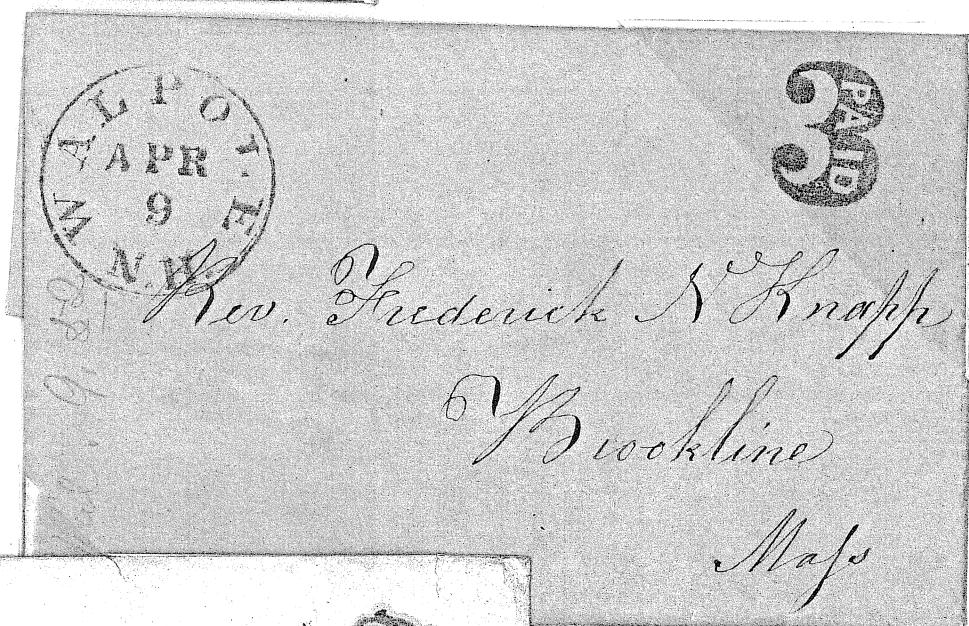 WALPOLE
APR
9
N.H.
3
PAID
Rev. Frederick N Knapp
Brookline
Mass